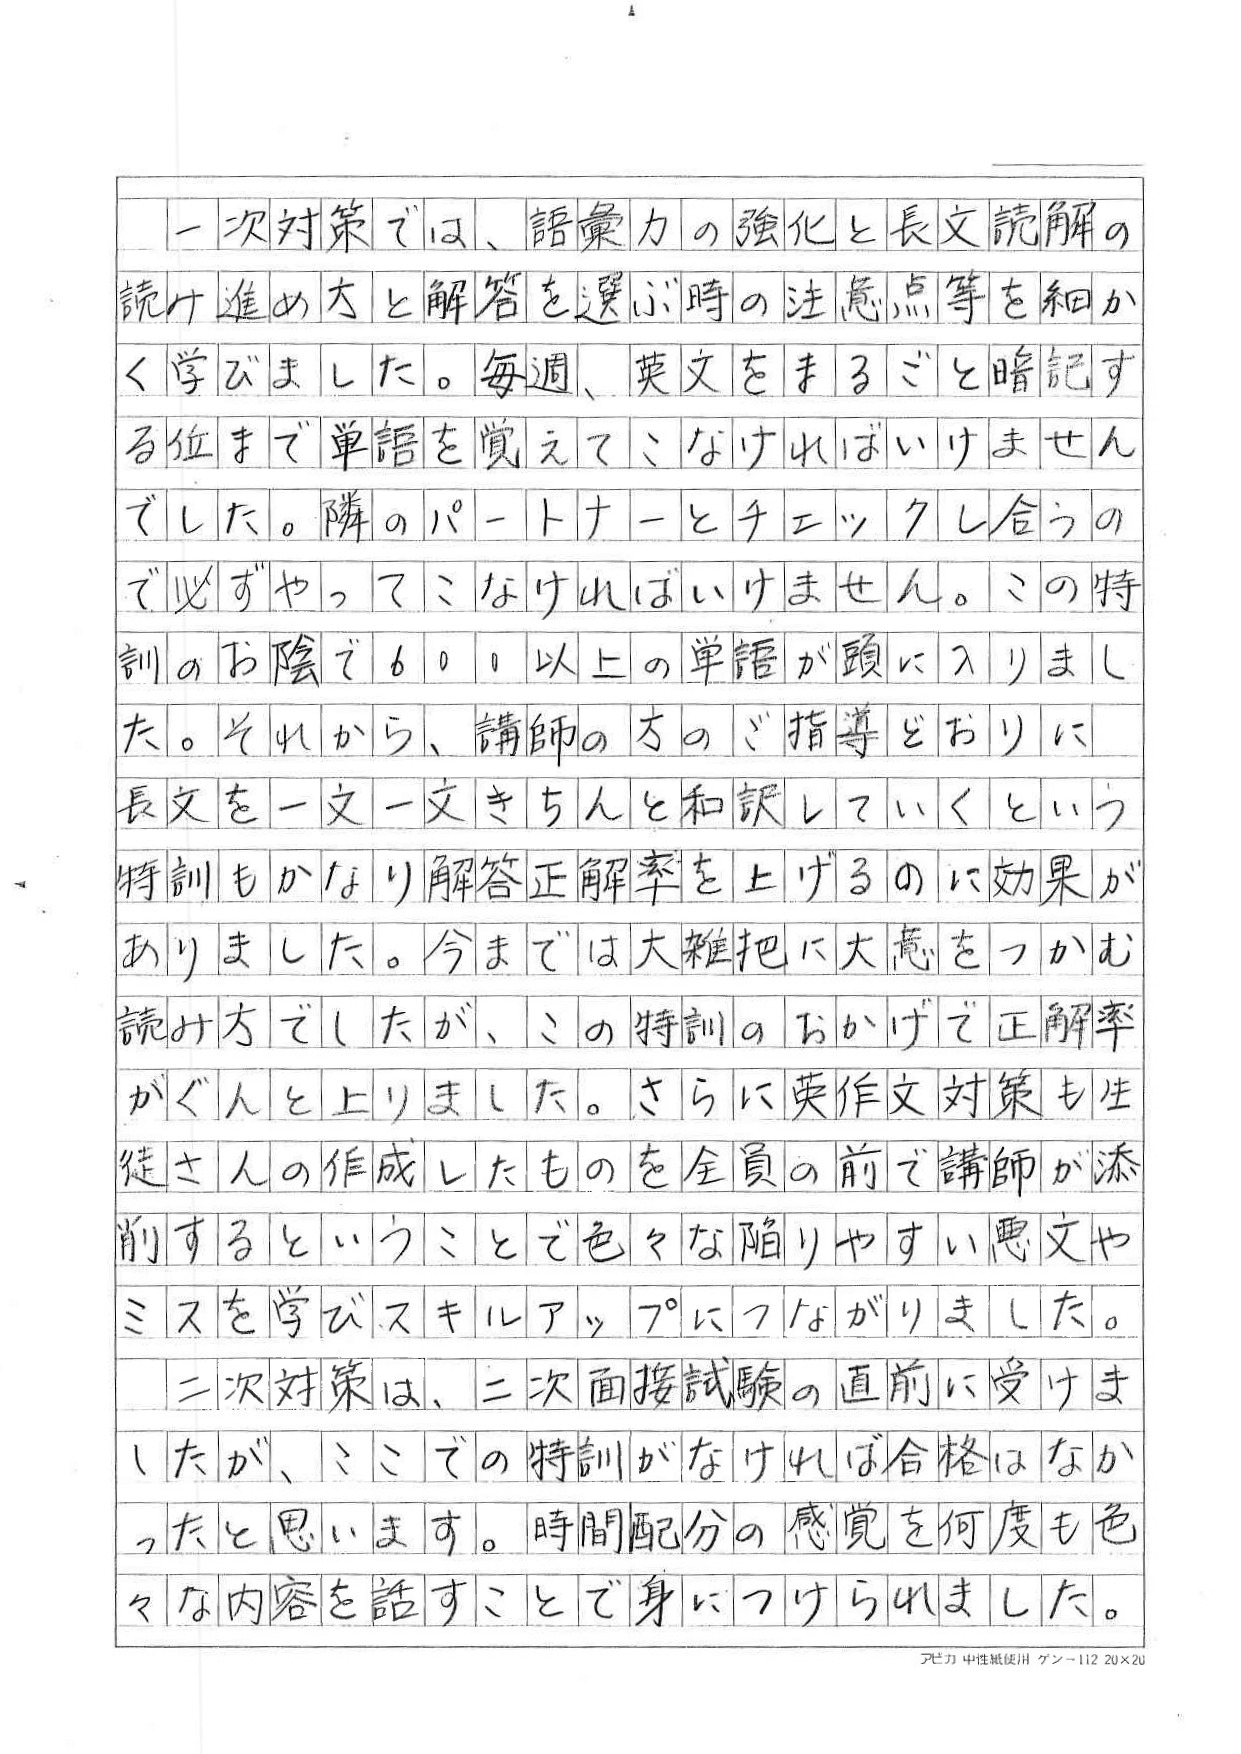 一次対策では、語彙力の強化と長文読解の
読み進め方と解答を選ぶ時の注意点等を細か
く学びました。毎週、英文をまるごと暗記す
る位まで単語を覚えてこなければいけません
でした。隣のパートナーとチェックし合うの
で必ずやってこなければいけません。この特
訓のお陰で600以上の単語が頭に入りまし
た。それから、講師の方のご指導どおりに
長文を一文一文きちんと和訳していくという
特訓もかなり解答正解率を上げるのに効果が
ありました。今までは大雑把に大意をつかむ
読み方でしたが、この特訓のおかげで正解率
がぐんと上りました。さらに英作文対策も生
徒さんの作成したものを全員の前で講師が添
削するということで色々な陥りやすい悪文や
ミスを学びスキルアップにつながりました。
二次対策は、二次面接試験の直前に受けま
したが、ここでの特訓がなければ合格はなか
ったと思います。時間配分の感覚を何度も色
々な内容を話すことで身につけられました。
アピカ 中性紙使用 ゲンー112 20×20